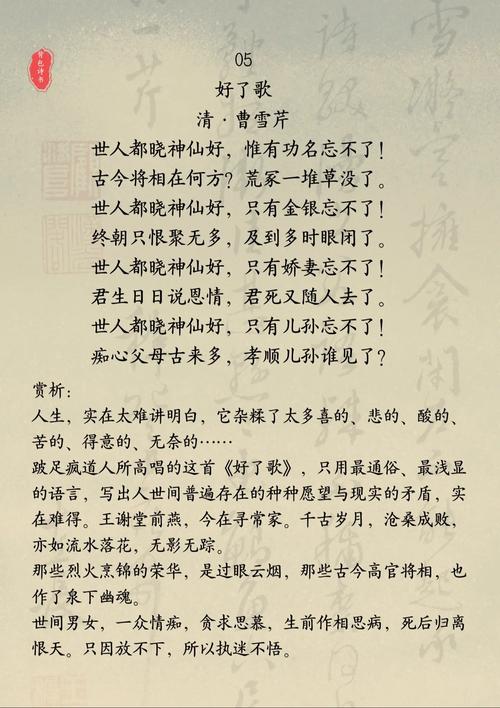 青色诗书
05
好了歌
清·曹雪芹
世人都晓神仙好，惟有功名忘不了！
古今将相在何方？荒冢一堆草没了。
世人都晓神仙好，只有金银忘不了！
终朝只恨聚无多，及到多时眼闭了。
世人都晓神仙好，只有娇妻忘不了！
君生日日说恩情，君死又随人去了。
世人都晓神仙好，只有儿孙忘不了！
痴心父母古来多，孝顺儿孙谁见了？
赏析：
人生，实在太难讲明白，它杂糅了太多喜的、悲的、酸的、
苦的、得意的、无奈的……
跛足疯道人所高唱的这首《好了歌》，只用最通俗、最浅显
的语言，写出人世间普遍存在的种种愿望与现实的矛盾，实
在难得。王谢堂前燕，今在寻常家。千古岁月，沧桑成败，
亦如流水落花，无影无踪。
那些烈火烹锦的荣华，是过眼云烟，那些古今高官将相，也
作了泉下幽魂。
世间男女，一众情痴，贪求思慕，生前作相思病，死后归离
恨天。只因放不下，所以执迷不悟。